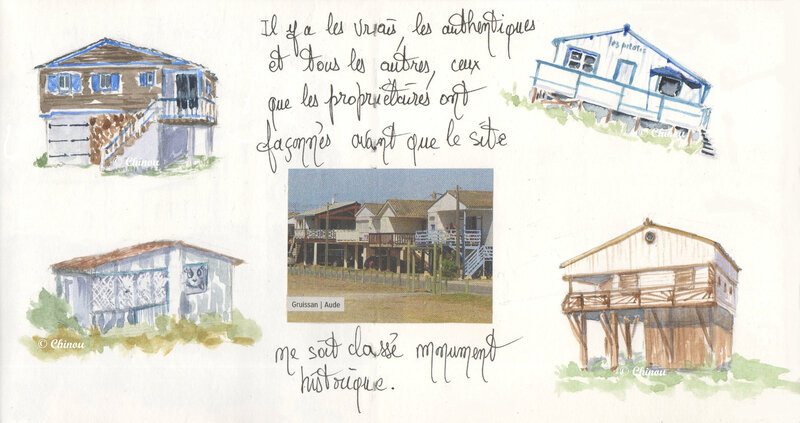 Il y a les vrais, les authentiques
et tous les autres, ceux
que les propriétaires ont
façonnés avant que le site
les pilotis
© Chinou
© Chinou
Gruissan | Aude
© Chinou
© Chinou
ne soit classé monument
historique.